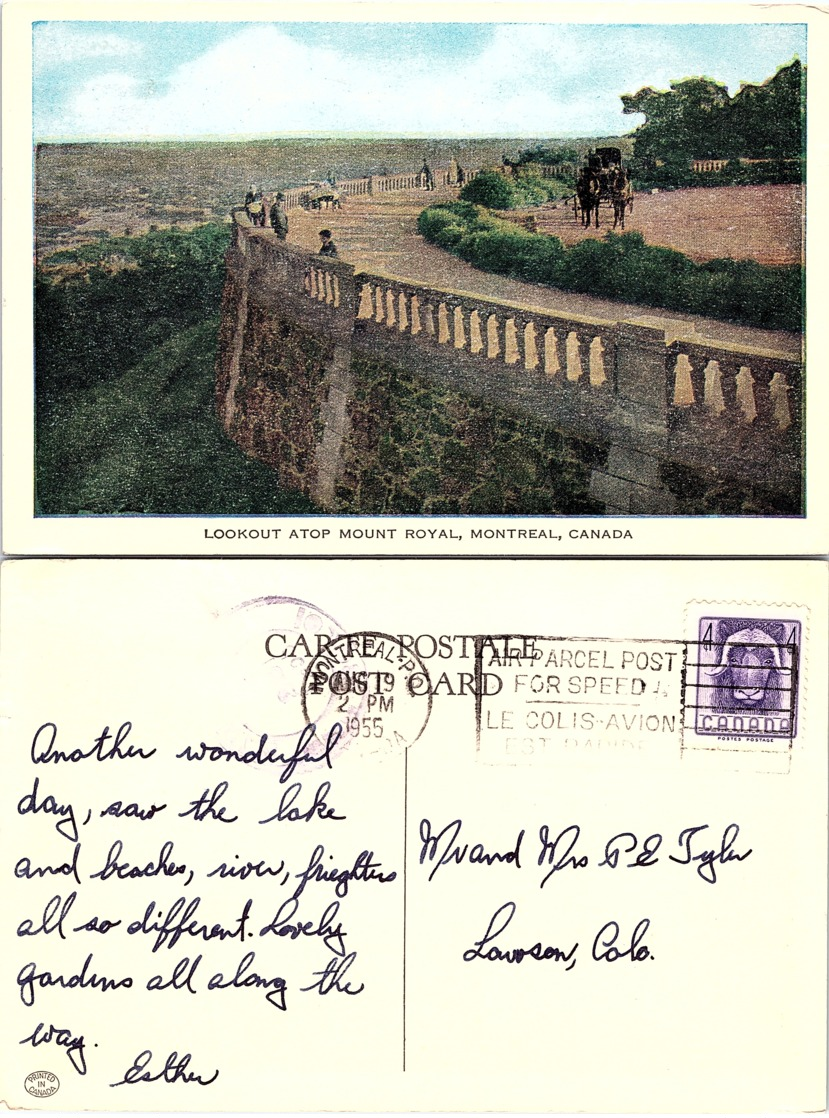 LOOKOUT ATOP MOUNT ROYAL, MONTREAL, CANADA
CARTE POSTALE
POST CARD
MONTREAL P.Q.
19
2 PM
1955
AIR PARCEL POST
FOR SPEED
LE COLIS-AVION
EST RAPIDE
4 4
CANADA
POSTES POSTAGE
Another wonderful
day, saw the lake
and beaches, river, frieghters
all so different. Lovely
gardens all along the
way.
Esther
Mr and Mrs P E Tyler
Lawson, Colo.
PRINTED
IN
CANADA